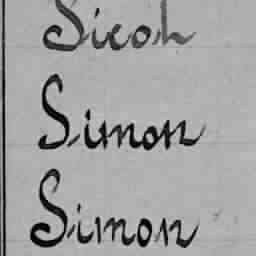 Sicoh
Simon
Simon